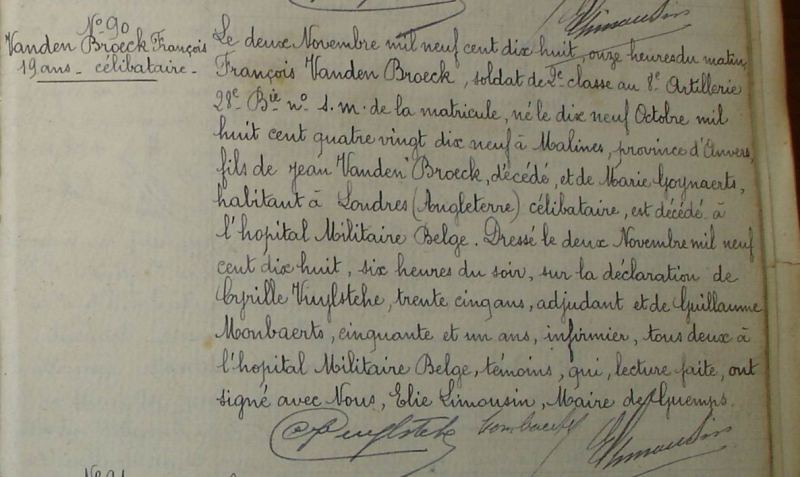 N° 90
Vanden Broeck François
19 ans - célibataire -
Le deux Novembre mil neuf cent dix huit, onze heures du matin,
François Vanden Broeck, soldat de 2e classe au 8e Artillerie
28e Bie n° s. m. de la matricule, né le dix neuf Octobre mil
huit cent quatre vingt dix neuf à Malines, province d'Anvers,
fils de Jean Vanden Broeck, décédé, et de Marie Goynaerts,
habitant à Londres (Angleterre) célibataire, est décédé à
l'hopital Militaire Belge. Dressé le deux Novembre mil neuf
cent dix huit, six heures du soir, sur la déclaration de
Cyrille Vuylsteke, trente cinq ans, adjudant et de Guillaume
Monbaerts, cinquante et un ans, infirmier, tous deux à
l'hopital Militaire Belge, témoins, qui, lecture faite, ont
signé avec Nous, Elie Limousin, Maire de Guemps.